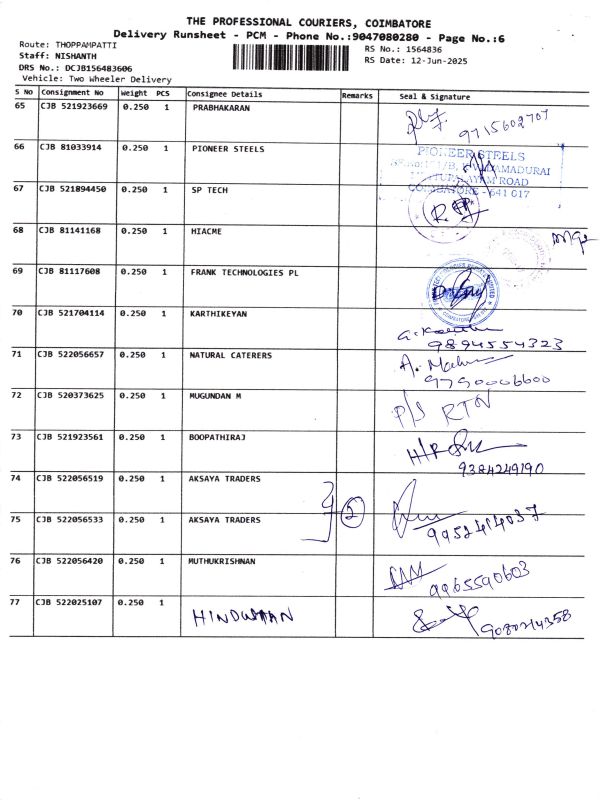 THE PROFESSIONAL COURIERS, COIMBATORE
Delivery Runsheet - PCM - Phone No.:9047080280 - Page No.:6
Route: THOPPAMPATTI
RS No.: 1564836
Staff: NISHANTH
RS Date: 12-Jun-2025
DRS No.: DCJB156483606
Vehicle: Two Wheeler Delivery
S No Consignment No Weight PCS Consignee Details Remarks Seal & Signature
65 CJB 521923669 0.250 1 PRABHAKARAN
9715602707
66 CJB 81033914 0.250 1 PIONEER STEELS
PIONEER STEELS
ROAD
COIMBATORE - 641 017
67 CJB 521894450 0.250 1 SP TECH
68 CJB 81141168 0.250 1 HIACME
69 CJB 81117608 0.250 1 FRANK TECHNOLOGIES PL
70 CJB 521704114 0.250 1 KARTHIKEYAN
9894554323
71 CJB 522056657 0.250 1 NATURAL CATERERS
9790006600
72 CJB 520373625 0.250 1 MUGUNDAN M P/S RTN
73 CJB 521923561 0.250 1 BOOPATHIRAJ
9384249190
74 CJB 522056519 0.250 1 AKSAYA TRADERS
2
75 CJB 522056533 0.250 1 AKSAYA TRADERS
9952414037
76 CJB 522056420 0.250 1 MUTHUKRISHNAN
9965590603
77 CJB 522025107 0.250 1 HINDUSTAN